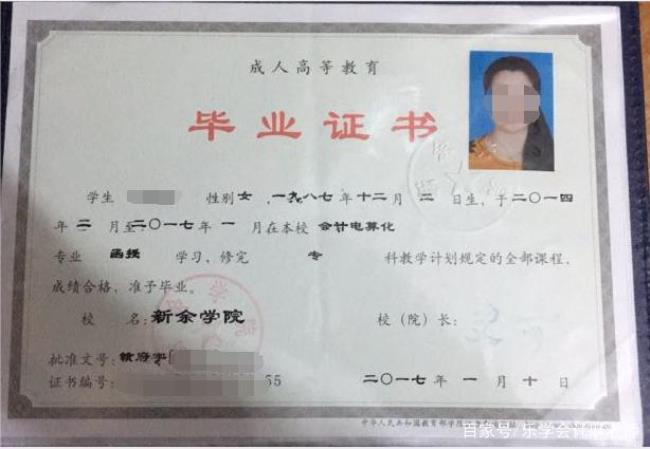 成人高等教育
毕业证书
学生 性别 女 ，一九八七年十二月 二 日生，于二〇一四
年 二 月至 二〇一七年 一 月在本校 会计电算化
专业 函授 学习，修完 专 科教学计划规定的全部课程，
成绩合格，准予毕业。
校 名：新余学院 校（院）长：
批准文号：赣府字
证书编号： 55 二〇一七年 一 月 十 日
中华人民共和国教育部学
百家号/乐学会计